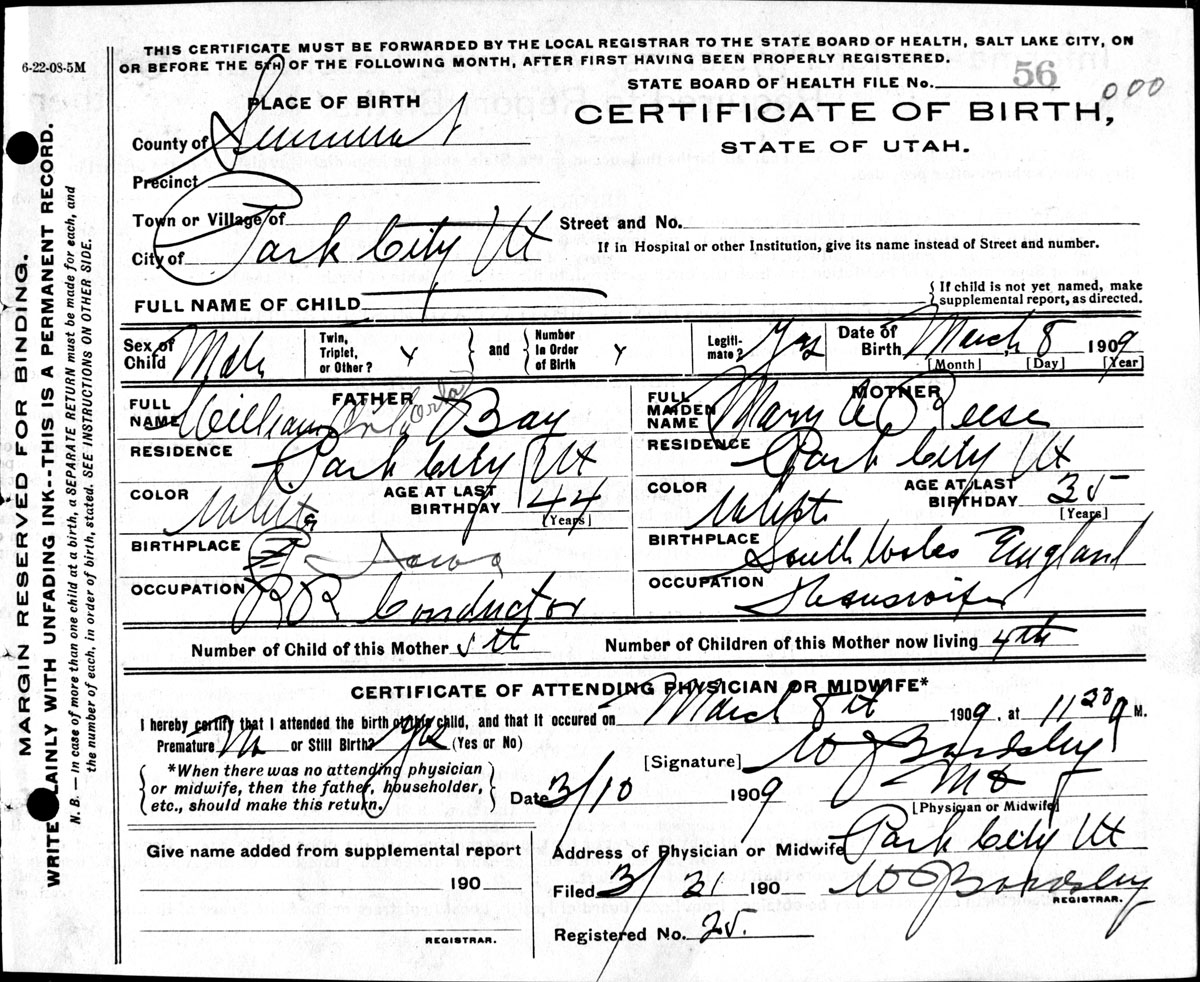 6-22-08-5M
THIS CERTIFICATE MUST BE FORWARDED BY THE LOCAL REGISTRAR TO THE STATE BOARD OF HEALTH, SALT LAKE CITY, ON
OR BEFORE THE 5TH OF THE FOLLOWING MONTH, AFTER FIRST HAVING BEEN PROPERLY REGISTERED.
STATE BOARD OF HEALTH FILE No. 56 000
PLACE OF BIRTH
CERTIFICATE OF BIRTH,
STATE OF UTAH.
County of Summit
Precinct
Town or Village of
Street and No.
City of Park City Ut
If in Hospital or other Institution, give its name instead of Street and number.
FULL NAME OF CHILD
{ If child is not yet named, make
supplemental report, as directed.
Sex of Child Male
Twin, Triplet, or Other?
and
Number In Order of Birth
Legiti- mate? Yes
Date of Birth March 8 1909
[Month] [Day] [Year]
FATHER
FULL NAME William Orla Bay
RESIDENCE Park City Ut
COLOR White
AGE AT LAST BIRTHDAY 44
[Years]
BIRTHPLACE Iowa
OCCUPATION RR Conductor
MOTHER
FULL MAIDEN NAME Mary A Reese
RESIDENCE Park City Ut
COLOR White
AGE AT LAST BIRTHDAY 35
[Years]
BIRTHPLACE South Wales England
OCCUPATION Housewife
Number of Child of this Mother 5th
Number of Children of this Mother now living 4th
CERTIFICATE OF ATTENDING PHYSICIAN OR MIDWIFE*
I hereby certify that I attended the birth of this child, and that it occured on March 8th 1909, at 11 M.
Premature No or Still Birth? Yes (Yes or No)
*When there was no attending physician
or midwife, then the father, householder,
etc., should make this return.
[Signature] W J Bardsley
MD
[Physician or Midwife]
Date 3/10 1909
Give name added from supplemental report
190
REGISTRAR.
Address of Physician or Midwife Park City Ut
Filed 3/31 190 W J Bardsley
REGISTRAR.
Registered No. 25.
MARGIN RESERVED FOR BINDING.
WRITE PLAINLY WITH UNFADING INK--THIS IS A PERMANENT RECORD.
N. B. — In case of more than one child at a birth, a SEPARATE RETURN must be made for each, and
the number of each, in order of birth, stated. SEE INSTRUCTIONS ON OTHER SIDE.